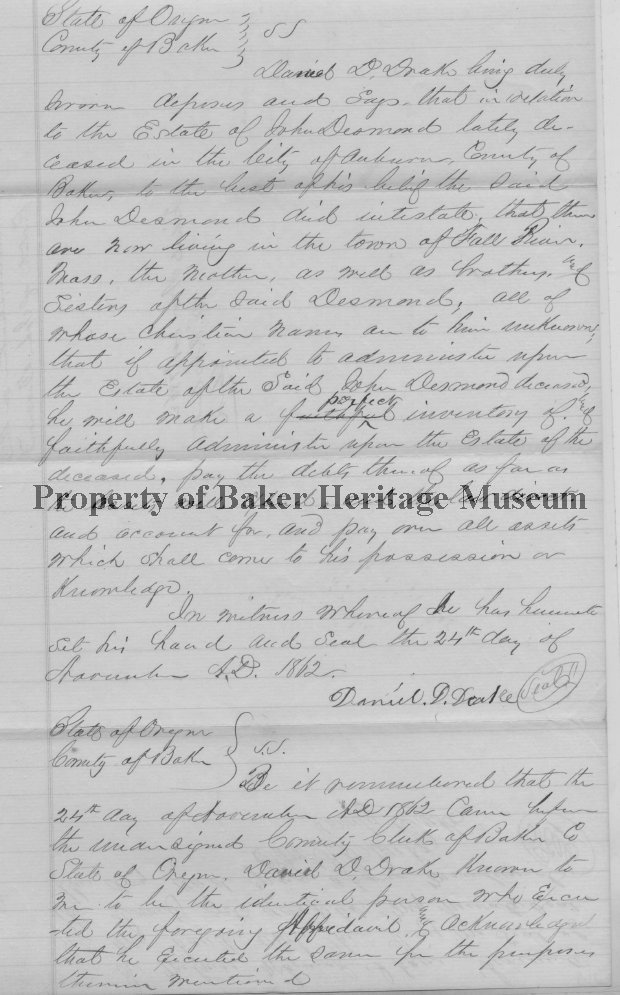 State of Oregon
County of Baker } SS
Daniel D. Drake being duly
sworn deposes and says that in relation
to the Estate of John Desmond lately de-
ceased in the City of Auburn, County of
Baker, to the best of his belief the said
John Desmond died intestate, that there
are now living in the town of Fall River,
Mass, the Mother, as well as brothers &
Sisters of the said Desmond, all of
whose Christian names are to him unknown,
that if appointed to administer upon
the Estate of the Said John Desmond deceased,
perfect
he will make a faithful inventory of &
faithfully administer upon the Estate of the
deceased, pay the debts thereof as far as
Property of Baker Heritage Museum
and account for, and pay over all assets
which shall come to his possession or
Knowledge.
In witness whereof he has hereunto
set his hand and Seal the 24th day of
November A.D. 1862.
Daniel. D. Drake Seal
State of Oregon
County of Baker } SS.
Be it remembered that the
24th day of November AD 1862 Came before
the undersigned County Clerk of Baker Co
State of Oregon. Daniel D Drake Known to
me to be the identical person who Execu
-ted the foregoing Affidavit, & acknowledged
that he Executed the same for the purposes
therein mentioned